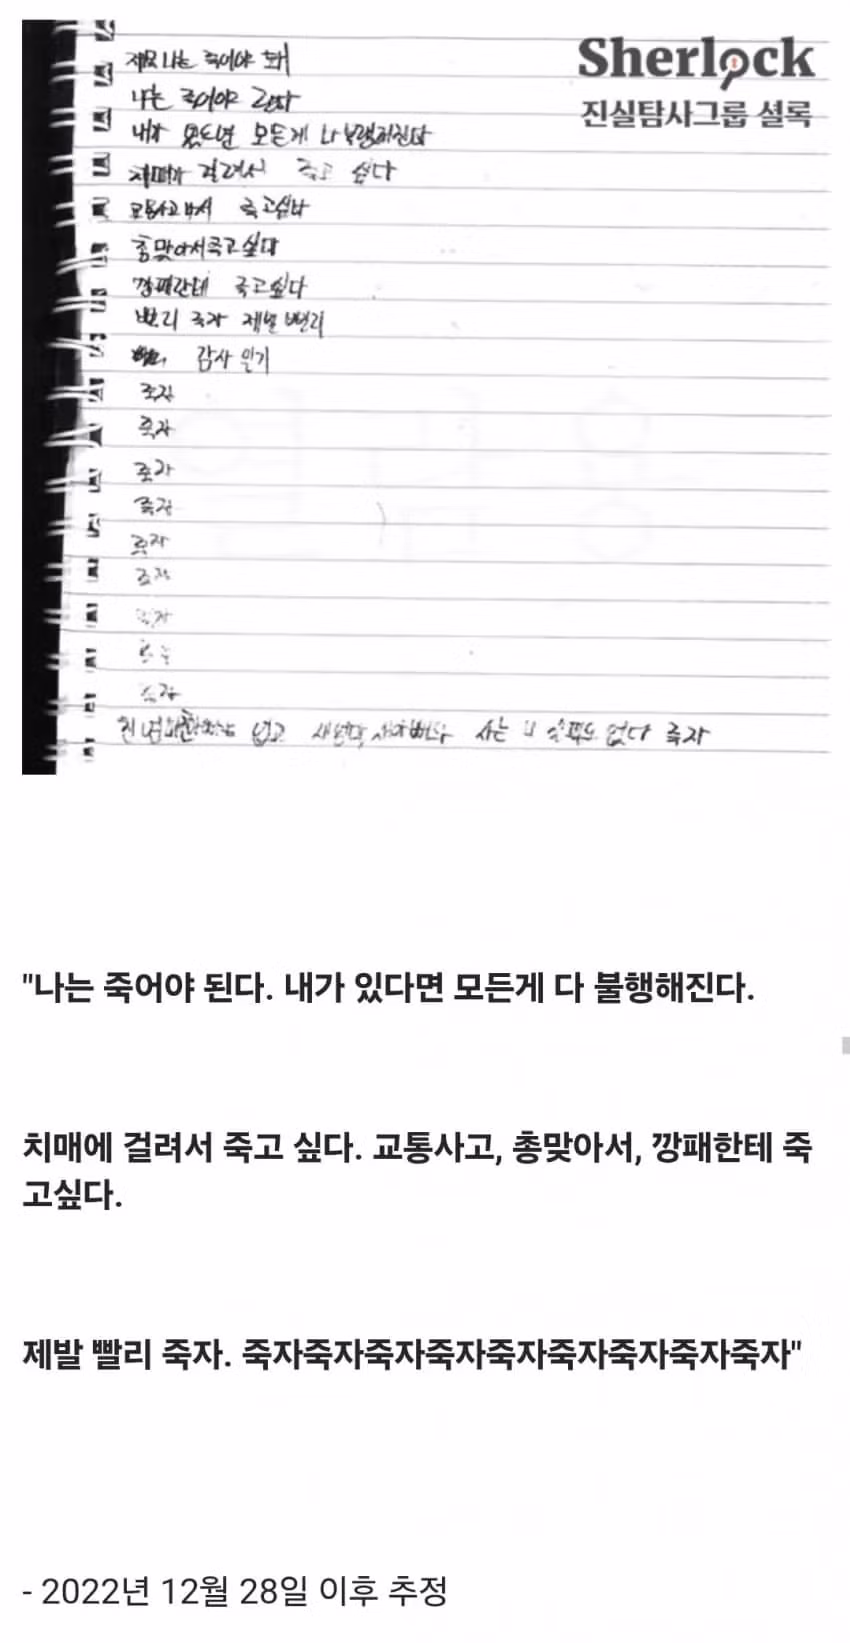 Sherlock
진실탐사그룹 셜록
나는 죽어야 돼
나는 죽어야 된다
내가 있다면 모든게 다 불행해진다
치매가 걸려서 죽고 싶다
죽고싶다
총맞아서죽고싶다
깡패한테 죽고싶다
빨리 죽자 제발 빨리
감사 일기
죽자
죽자
죽자
죽자
죽자
죽자
죽자
죽자
없고 사는 없다 죽자
"나는 죽어야 된다. 내가 있다면 모든게 다 불행해진다.
치매에 걸려서 죽고 싶다. 교통사고, 총맞아서, 깡패한테 죽
고싶다.
제발 빨리 죽자. 죽자죽자죽자죽자죽자죽자죽자죽자죽자"
- 2022년 12월 28일 이후 추정